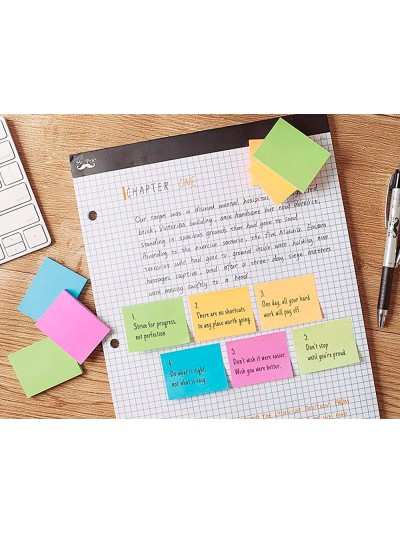 Mr. Pen
CHAPTER ONE
Our target was a disused mental hospital
brick, Victorian building, once handsome but now derelict,
standing in spacious grounds that had gone to seed.
According to the exercise scenario, the five Middle Eastern
terrorists who had gone to ground inside were holding
hostages captive, and after a three day siege matters
were moving swiftly to a head.
1.
Strive for progress,
not perfection
2.
There are no shortcuts
to any place worth going.
3.
One day, all your hard
work will pay off.
4.
Do what is right,
not what is easy.
5.
Don't wish it were easier.
Wish you were better.
Don't stop
until you're proud.